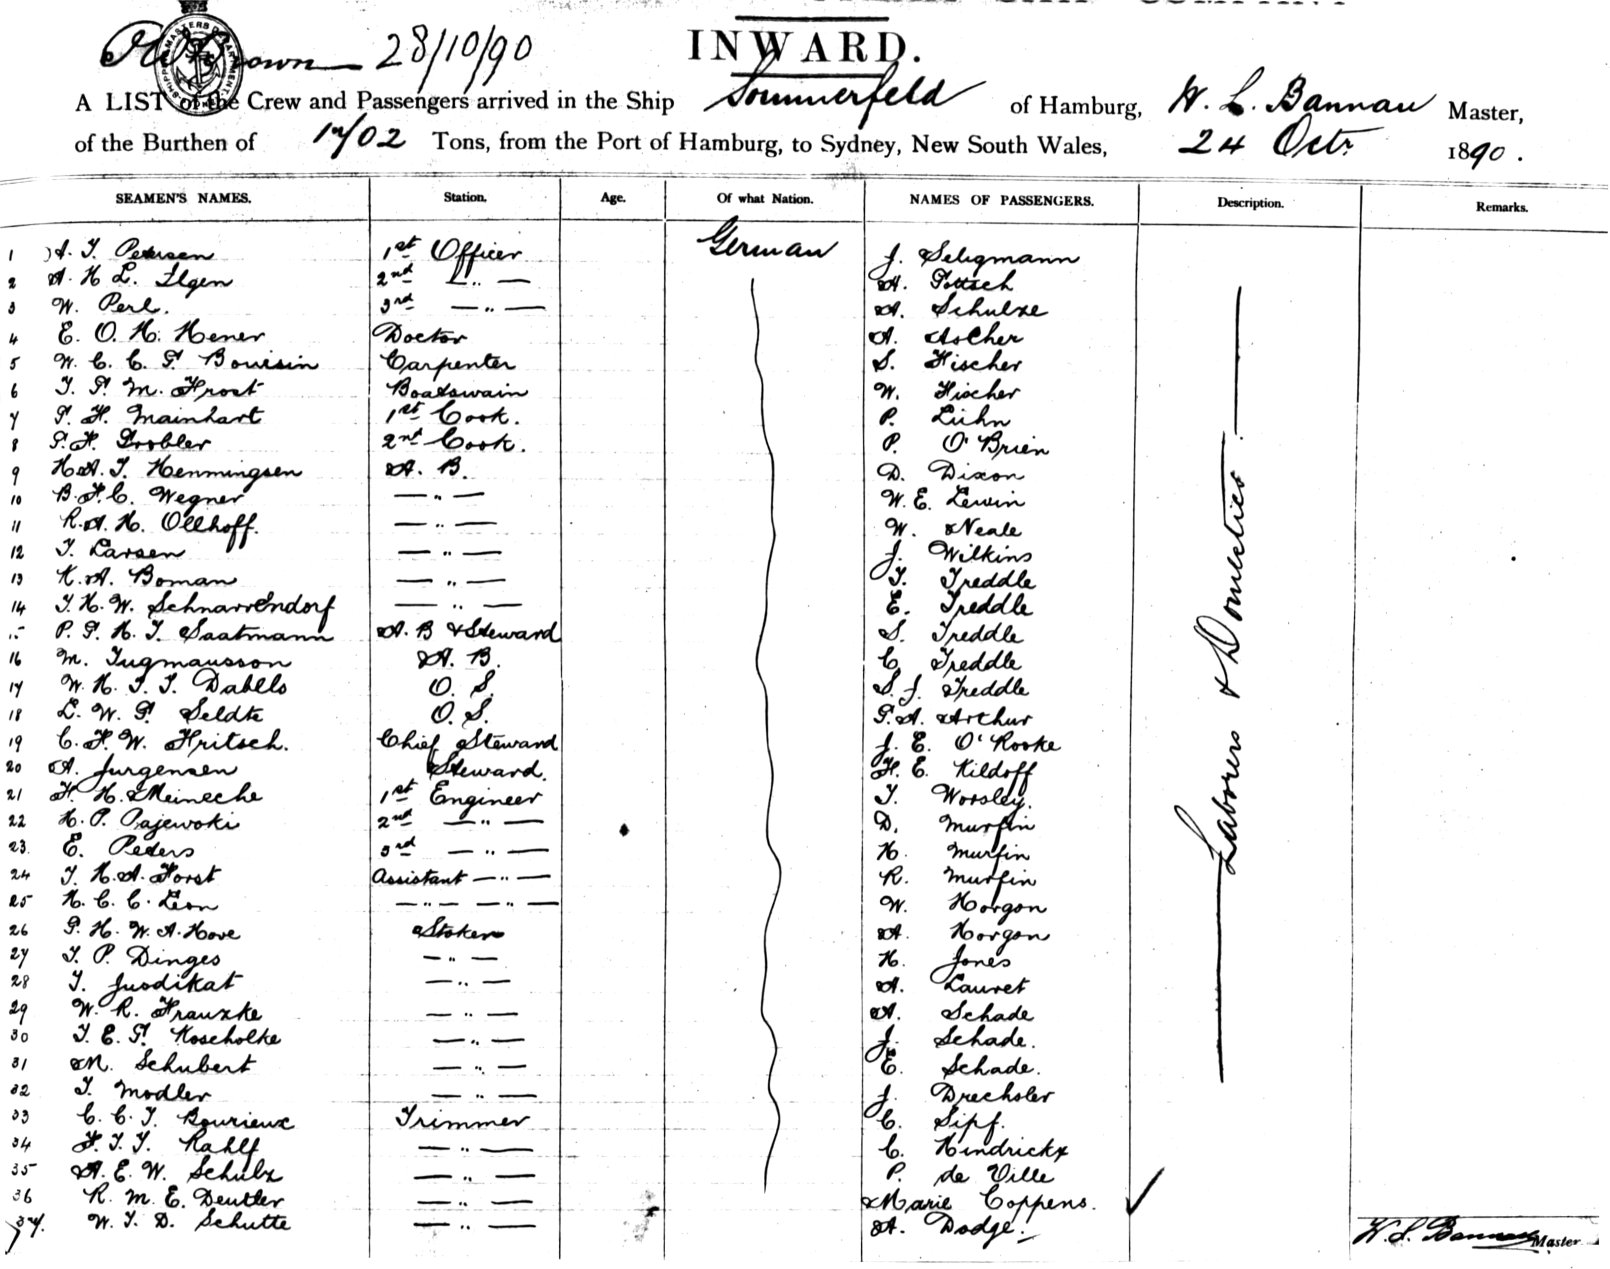 28/10/90
INWARD.
A LIST of the Crew and Passengers arrived in the Ship Sommerfeld of Hamburg, W. L. Bannau Master,
of the Burthen of Tons, from the Port of Hamburg, to Sydney, New South Wales, 24 Octr. 1890.
SEAMEN'S NAMES. Station. Age. Of what Nation. NAMES OF PASSENGERS. Description. Remarks.
1 A. T. Petersen 1st Officer German J. Seligmann
2 A. H L. Ilgen 2nd — " — A. Gottsch
3 W. Perl. 3rd — " — A. Schulze
4 E. O. H. Hener Doctor A. Ascher
5 W. C. C. G. Bouisin Carpenter S. Fischer
6 T. G. M. Frost Boatswain W. Fischer
7 G. H. Mainhart 1st Cook. P. Lühn
8 G. F. Grobler 2nd Cook. P. O'Brien
9 H. A. T. Henningsen A. B. D. Dixon
10 B. F. C. Wegner — " — W. E. Lewin
11 R. A. H. Ollhoff. — " — W. Neale
12 T. Larsen — " — J. Wilkins
13 K. A. Boman — " — T. Treddle
14 T. H. W. Schnarrendorf — " — E. Treddle
15 P. G. H. T. Saatmann A. B & Steward S. Treddle
16 M. Ingmausson A. B. C. Treddle
17 W. H. T. T. Dabells O. S. S. J. Treddle
18 L. W. G. Seldte O. S. G. A. Arthur
19 C. F. W. Fritsch. Chief Steward J. E. O'Rooke
20 A. Jurgensen Steward. F. E. Kildoff
21 F. H. Meineche 1st Engineer T. Worsley.
22 H. P. Pajewski 2nd — " — D. Murfin
23. E. Peders 3rd — " — H. Murfin
24 T. H. A. Horst Assistant — " — R. Murfin
25 H. C. C. Leon — " — " — W. Horgon
26 G. H. W. A. Hove Stoker A. Horgon
27 T. P. Dinges — " — H. Jones
28 T. Jusdikat — " — A. Lauret
29 W. R. Franzke — " — A. Schade
30 T. E. G. Koscholke — " — J. Schade.
31 M. Schubert — " — E. Schade.
32 T. Modler — " — J. Drechsler
33 C. C. T. Bourieux Trimmer C. Sipf.
34 F. T. T. Rahlf — " — C. Hendrickx
35 A. E. W. Schulz — " — P. de Ville
36 R. M. E. Deutler — " — Marie Coppens. ✓
37. W. T. D. Schutte — " — A. Dodge.
Laborers & Domestics
W. L. Bannau Master